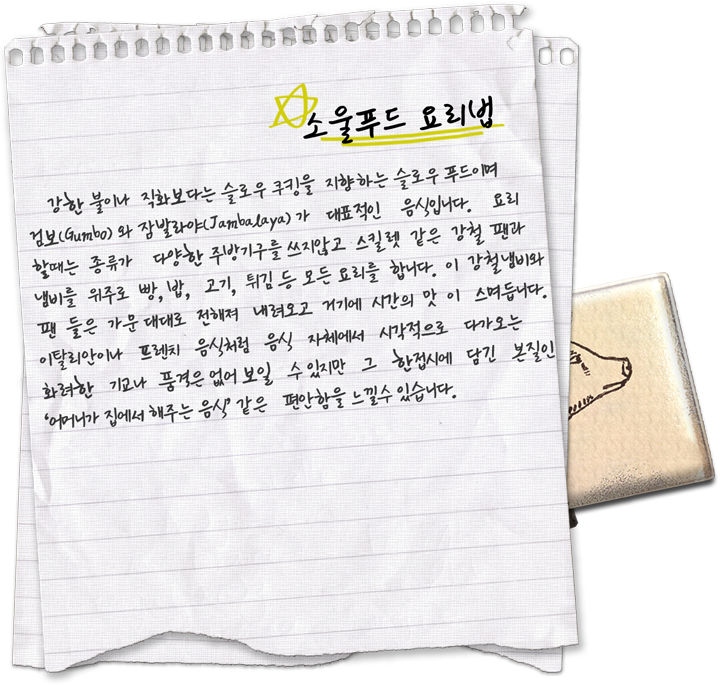 소울푸드 요리법
강한 불이나 직화보다는 슬로우 쿠킹을 지향하는 슬로우 푸드이며
검보(Gumbo)와 잠발라야(Jambalaya)가 대표적인 음식입니다. 요리
할때는 종류가 다양한 주방기구를 쓰지않고 스킬렛 같은 강철 팬과
냄비를 위주로 빵, 밥, 고기, 튀김 등 모든 요리를 합니다. 이 강철냄비와
팬 들은 가문 대대로 전해져 내려오고 거기에 시간의 맛 이 스며듭니다.
이탈리안이나 프렌치 음식처럼 음식 자체에서 시각적으로 다가오는
화려한 기교나 풍격은 없어 보일 수 있지만 그 한접시에 담긴 본질인
‘어머니가 집에서 해주는 음식’ 같은 편안함을 느낄수 있습니다.